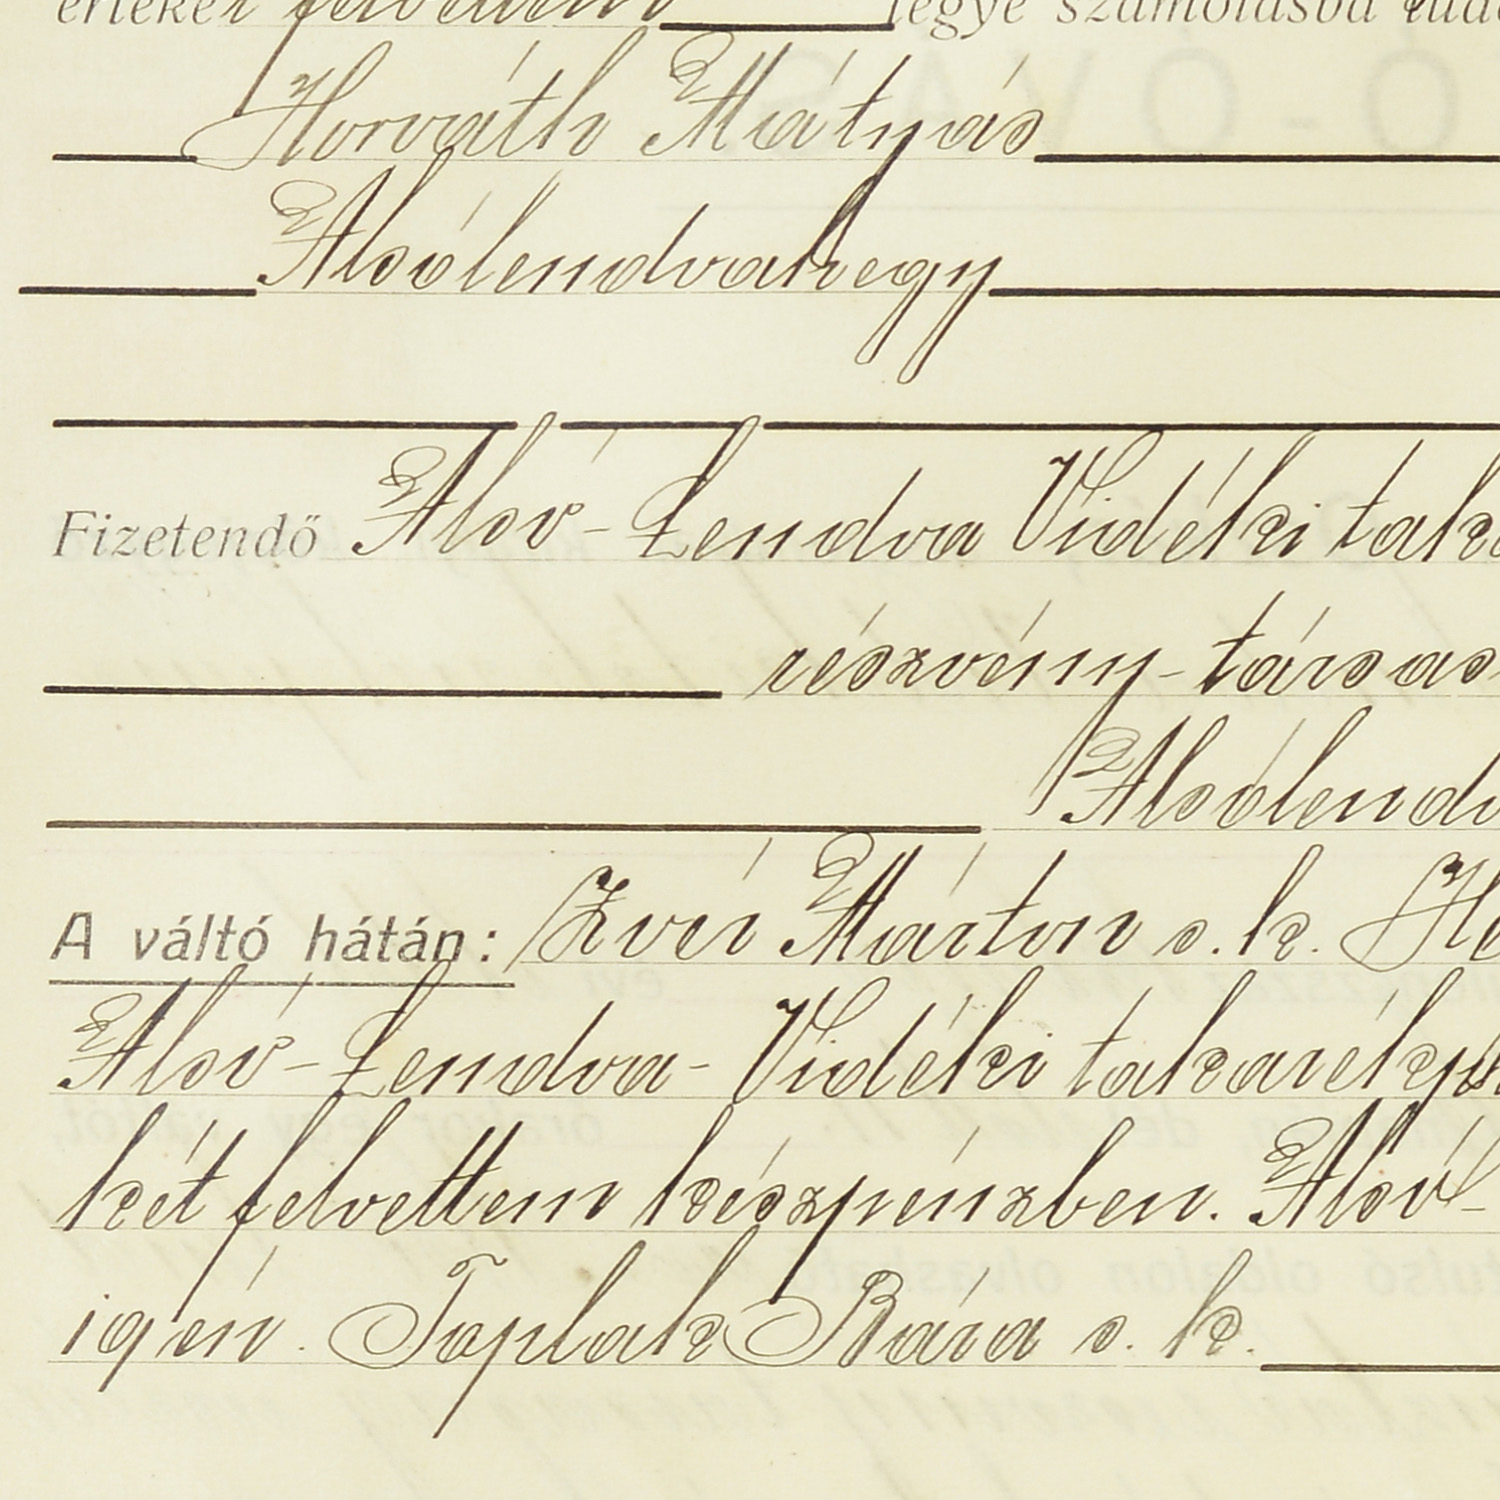 értékét felvettem legye számolásba tuda
Horváth Mátyás
Alsólendvahegy
Fizetendő Alsó-Lendva Vidéki taka
részvény-társas
Alsólendv
A váltó hátán: Zver Márton s. k. Ho
Alsó-Lendva-Vidéki takarékp
két felvettem készpénzben. Alsó-
igén. Toplak Bára s. k.